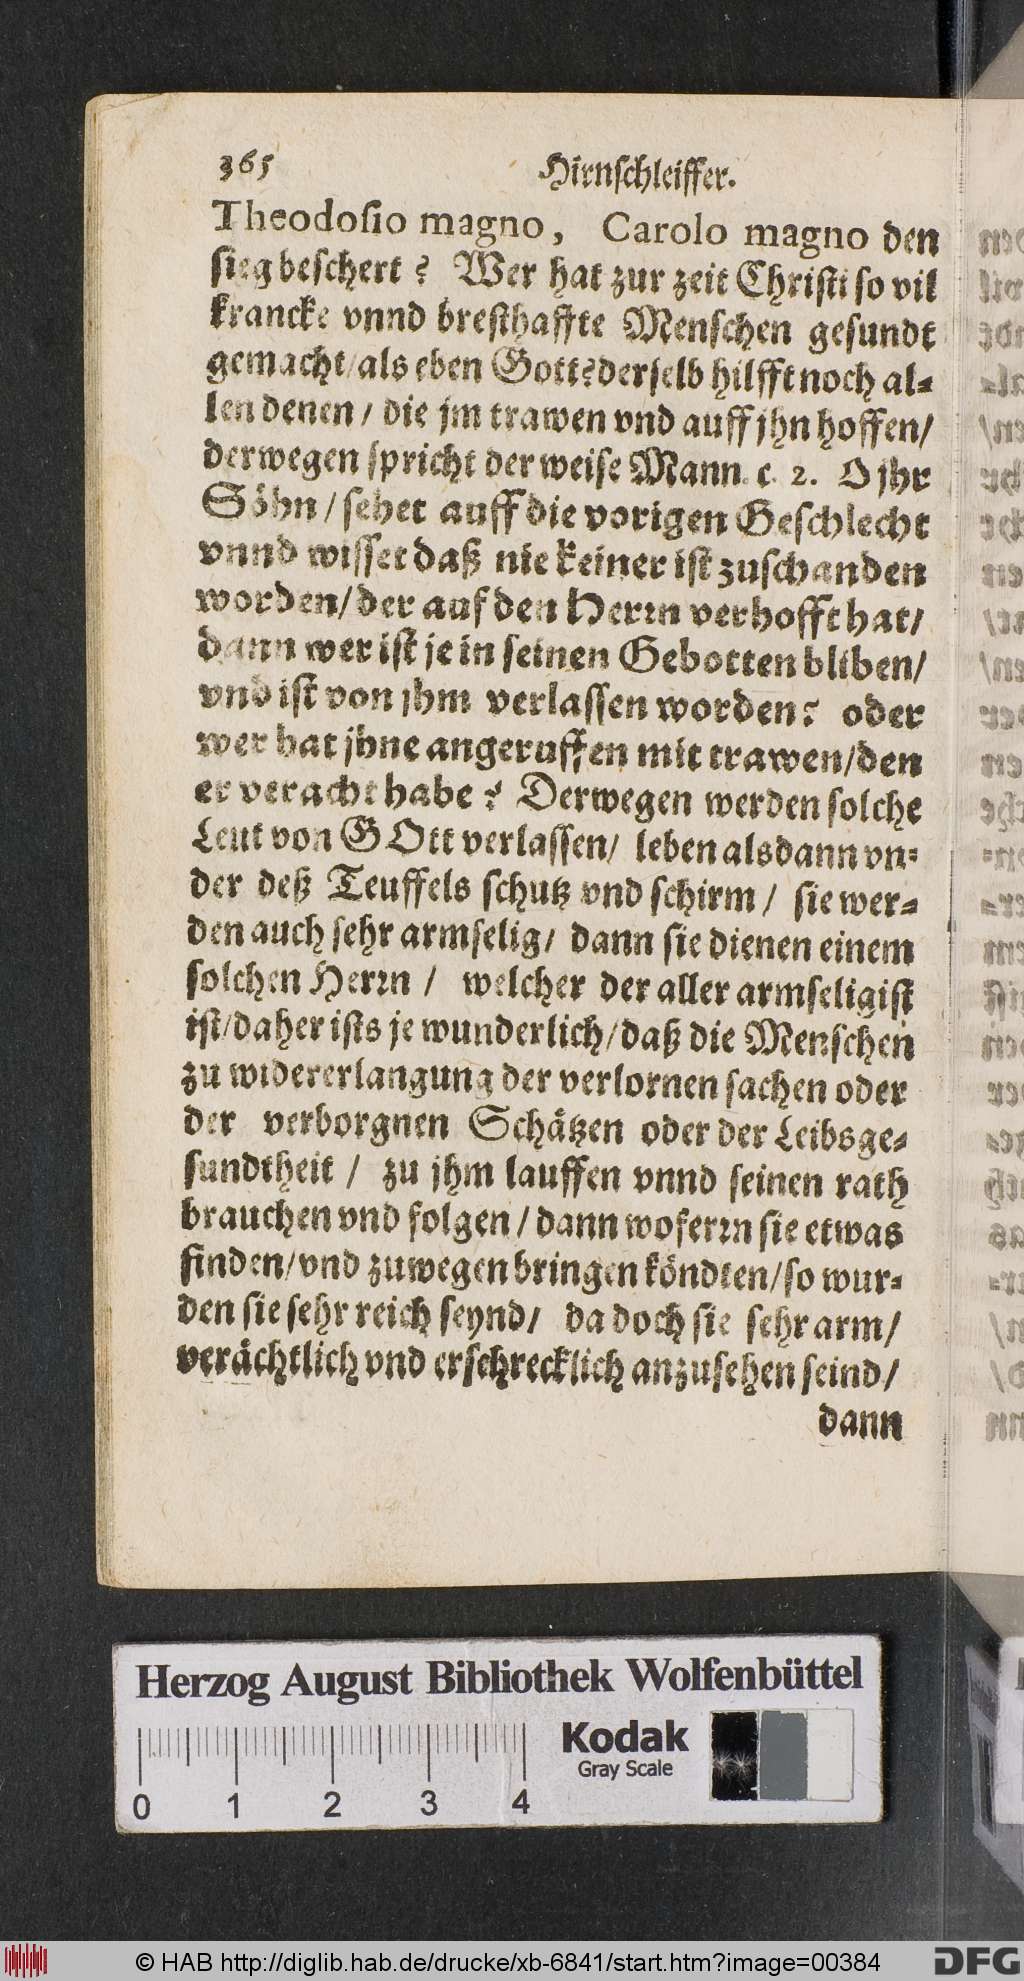 365 Hirnschleiffer.
Theodosio magno, Carolo magno den
sieg beschert? Wer hat zur zeit Christi so vil
krancke vnnd bresthaffte Menschen gesundt
gemacht/als eben Gott?derselb hilfft noch al-
len denen/ die jm trawen vnd auff jhn hoffen/
derwegen spricht der weise Mann. c. 2. O jhr
Söhn/sehet auff die vorigen Geschlecht
vnnd wisset daß nie keiner ist zuschanden
worden/der auf den Herrn verhofft hat/
dann wer ist je in seinen Gebotten bliben/
vnd ist von jhm verlassen worden? oder
wer hat jhne angeruffen mit trawen/den
er veracht habe? Derwegen werden solche
Leut von GOtt verlassen/ leben alsdann vn-
der deß Teuffels schutz vnd schirm/ sie wer-
den auch sehr armselig/ dann sie dienen einem
solchen Herrn/ welcher der aller armseligist
ist/daher ists je wunderlich/daß die Menschen
zu widererlangung der verlornen sachen oder
der verborgnen Schätzen oder der Leibsge-
sundtheit/ zu jhm lauffen vnnd seinen rath
brauchen vnd folgen/dann woferrn sie etwas
finden/vnd zuwegen bringen köndten/so wur-
den sie sehr reich seynd/ da doch sie sehr arm/
verächtlich vnd erschrecklich anzusehen seind/
dann
Herzog August Bibliothek Wolfenbüttel
Kodak
Gray Scale
0 1 2 3 4
© HAB http://diglib.hab.de/drucke/xb-6841/start.htm?image=00384
DFG